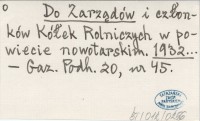 Do Zarządów i człon-
ków Kółek Rolniczych w po-
wiecie nowotarskim. 1932...
– Gaz. Podh. 20, nr 45.